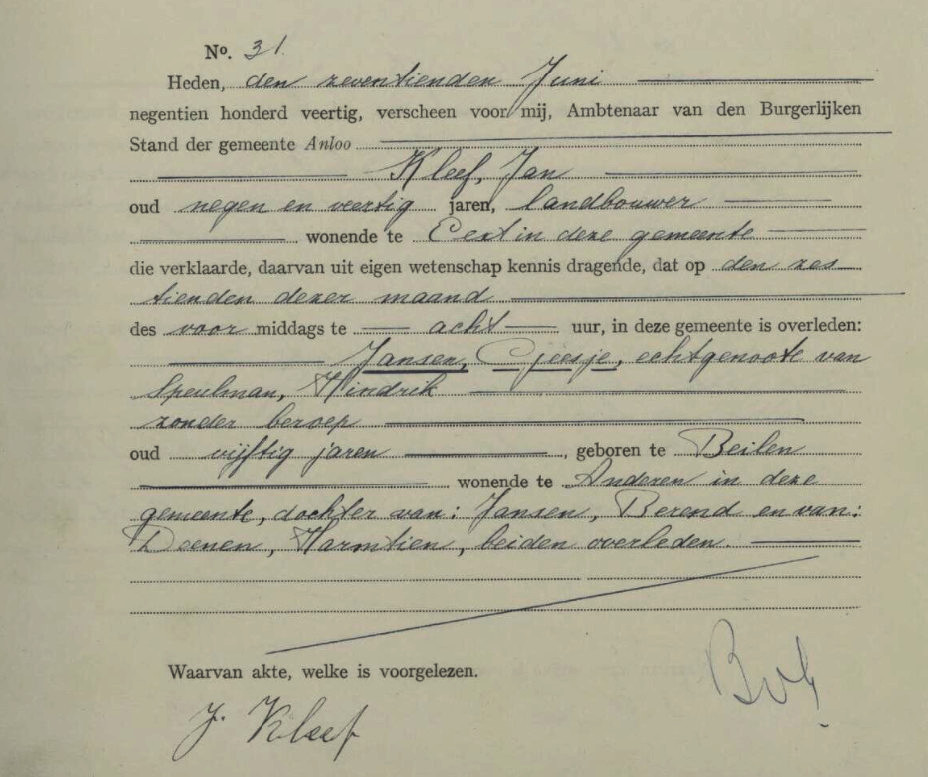 No. 31.
Heden, den zeventienden Juni
negentien honderd veertig, verscheen voor mij, Ambtenaar van den Burgerlijken
Stand der gemeente Anloo
Kleef, Jan
oud negen en veertig jaren, landbouwer
wonende te Eext in deze gemeente
die verklaarde, daarvan uit eigen wetenschap kennis dragende, dat op den zes
tienden dezer maand
des voor middags te acht uur, in deze gemeente is overleden:
Jansen, Geesje, echtgenoote van
Speelman, Hindrik
zonder beroep
oud vijftig jaren, geboren te Beilen
wonende te Anderen in deze
gemeente, dochter van: Jansen, Berend en van:
Deenen, Harmtien, beiden overleden.
Waarvan akte, welke is voorgelezen.
J. Kleef